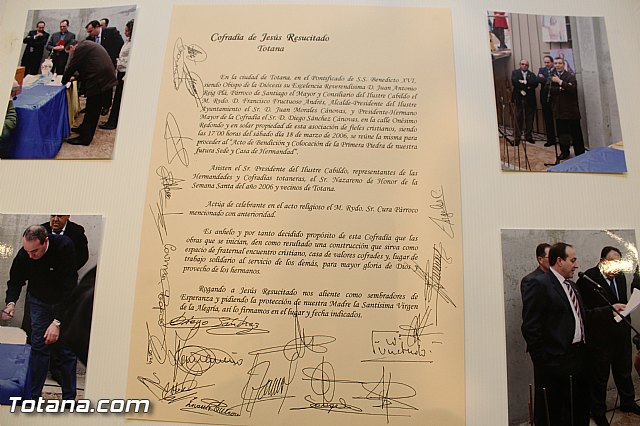 Cofradía de Jesús Resucitado
Totana
En la ciudad de Totana, en el Pontificado de S.S. Benedicto XVI,
siendo Obispo de la Diócesis su Excelencia Reverendísima D. Juan Antonio
Reig Plá, Párroco de Santiago el Mayor y Consiliario del Ilustre Cabildo el
M. Rvdo. D. Francisco Fructuoso Andrés, Alcalde-Presidente del Ilustre
Ayuntamiento el Sr. D. Juan Morales Cánovas, y Presidente-Hermano
Mayor de la Cofradía el Sr. D. Diego Sánchez Cánovas, en la calle Onésimo
Redondo y en solar propiedad de esta asociación de fieles cristianos, siendo
las 17'00 horas del sábado día 18 de marzo de 2006, se reúne la misma para
proceder al "Acto de Bendición y Colocación de la Primera Piedra de nuestra
futura Sede y Casa de Hermandad".
Asisten el Sr. Presidente del Ilustre Cabildo, representantes de las
Hermandades y Cofradías totaneras, el Sr. Nazareno de Honor de la
Semana Santa del año 2006 y vecinos de Totana.
Actúa de celebrante en el acto religioso el M. Rvdo. Sr. Cura Párroco
mencionado con anterioridad.
Es anhelo y por tanto decidido propósito de esta Cofradía que las
obras que se inician, den como resultado una construcción que sirva como
espacio de fraternal encuentro cristiano, casa de valores cofrades y, lugar de
trabajo solidario al servicio de los demás, para mayor gloria de Dios y
provecho de los hermanos.
Rogando a Jesús Resucitado nos aliente como sembradores de
Esperanza y pidiendo la protección de nuestra Madre la Santísima Virgen
de la Alegría, así lo firmamos en el lugar y fecha indicados.
Diego Sánchez
Totana.com